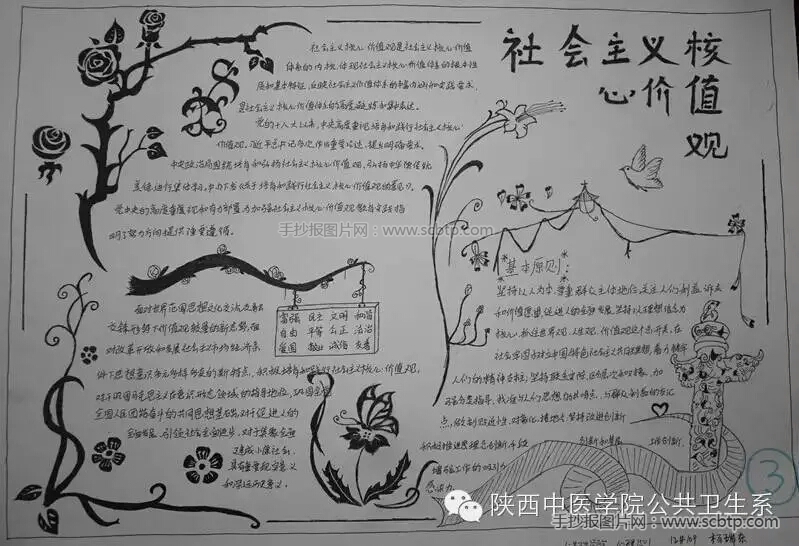 社会主义核
心价值
观
社会主义核心价值观是社会主义核心价值
体系的内核,体现社会主义核心价值体系的根本性
质和基本特征,反映社会主义核心价值体系的丰富内涵和实践要求,
是社会主义核心价值体系的高度凝练和集中表达。
党的十八大以来,中央高度重视培育和践行社会主义核心
价值观。习近平总书记多次作出重要论述、提出明确要求。
中央政治局围绕培育和弘扬社会主义核心价值观、弘扬中华传统
美德进行集体学习。中办下发《关于培育和践行社会主义核心价值观的意见》。
党中央的高度重视和有力部署,为加强社会主义核心价值观教育实践指
明了努力方向,提供了重要遵循。
手抄报图片网:www.scbtp.com
面对世界范围思想文化交流交融
交锋形势下价值观较量的新态势,面
对改革开放和发展社会主义市场经济条
件下思想意识多元多样多变的新特点,积极培育和践行社会主义核心价值观,
对于巩固马克思主义在意识形态领域的指导地位、巩固全党
全国人民团结奋斗的共同思想基础,对于促进人的
全面发展、引领社会全面进步,对于集聚全面
建成小康社会、
具有重要现实意义
和深远历史意义。
富强 民主 文明 和谐
自由 平等 公正 法治
爱国 敬业 诚信 友善
基本原则:
坚持以人为本,尊重群众主体地位,关注人们利益诉求
和价值愿望,促进人的全面发展;坚持以理想信念为
核心,抓住世界观、人生观、价值观这个总开关,在
全社会牢固树立中国特色社会主义共同理想,着力铸牢
人们的精神支柱;坚持联系实际,区分层次和对象,加
强分类指导,找准与人们思想的共鸣点、与群众利益的交汇
点,做到贴近性、对象化、接地气;坚持改进创新
创新和基层
工作创新
积极推进理念创新、手段
增强工作的吸引力
感染力。
3
陕西中医学院公共卫生系
手抄报图片网:www.scbtp.com